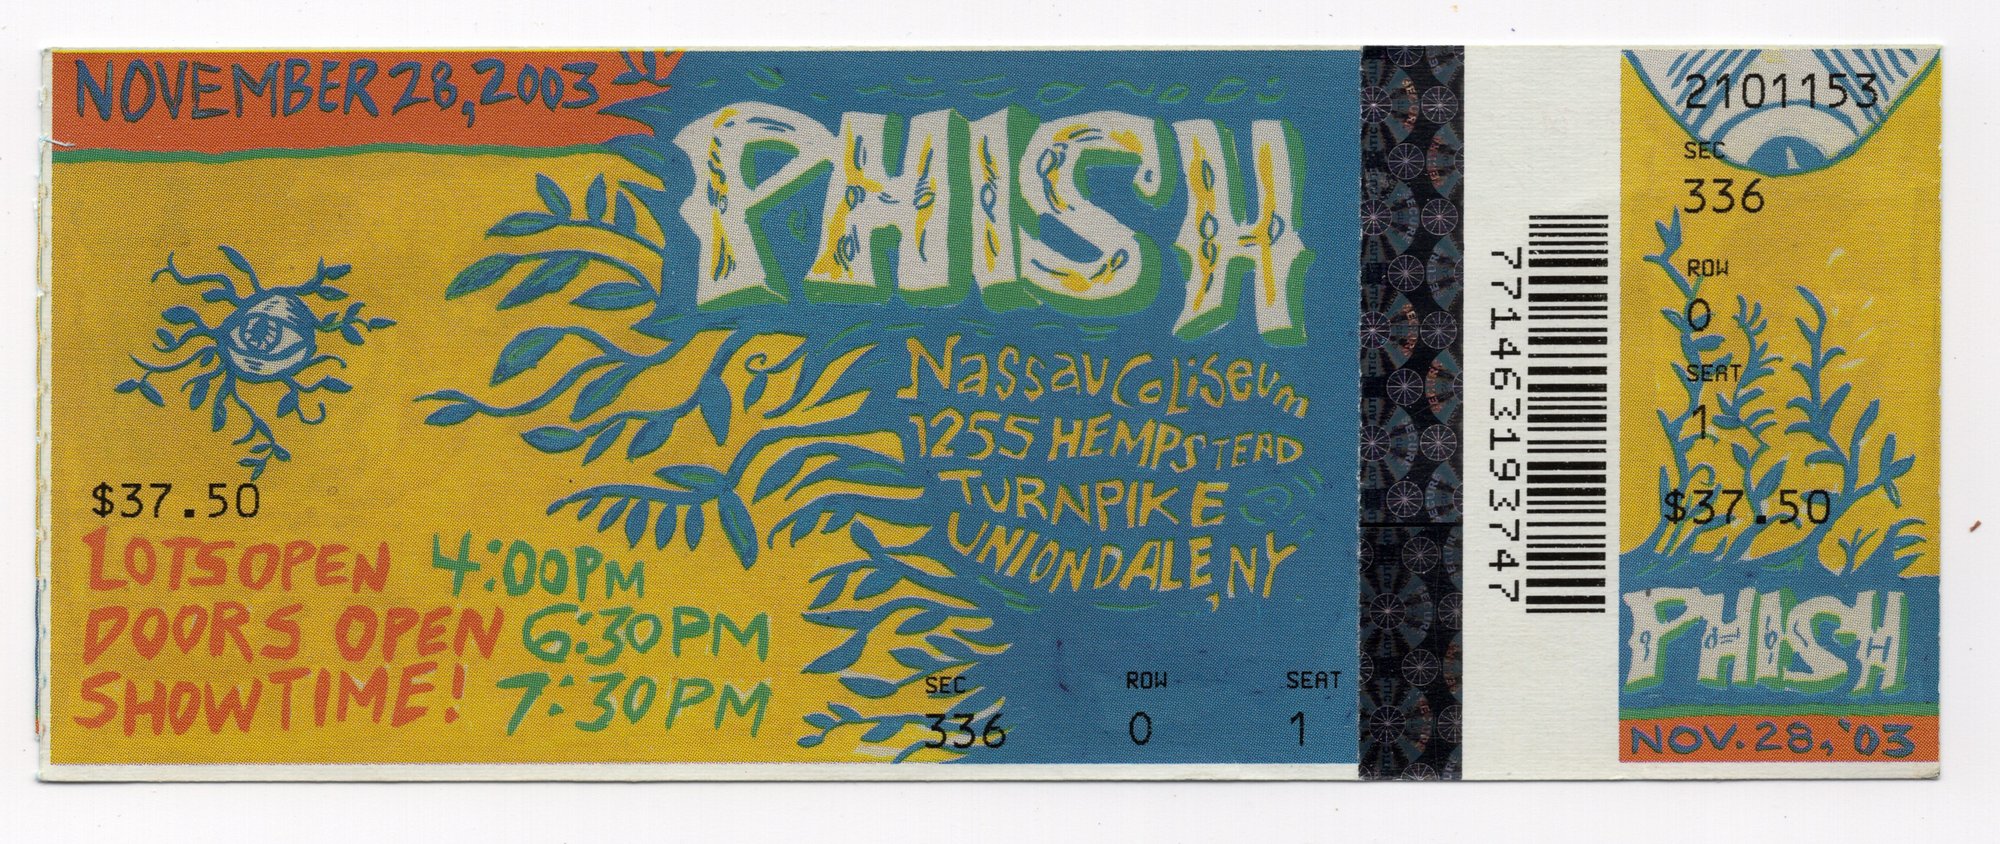 NOVEMBER 28, 2003
PHISH
NASSAU COLISEUM
1255 HEMPSTEAD
TURNPIKE
UNIONDALE, NY
$37.50
LOTS OPEN 4:00PM
DOORS OPEN 6:30PM
SHOWTIME! 7:30PM
SEC ROW SEAT
336 0 1
771463193747
2101153
SEC
336
ROW
0
SEAT
1
$37.50
PHISH
NOV. 28, '03